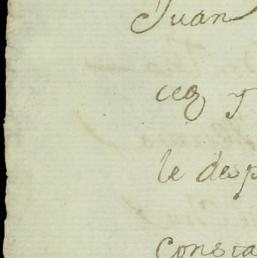 Juan
ces y
le desp
consta